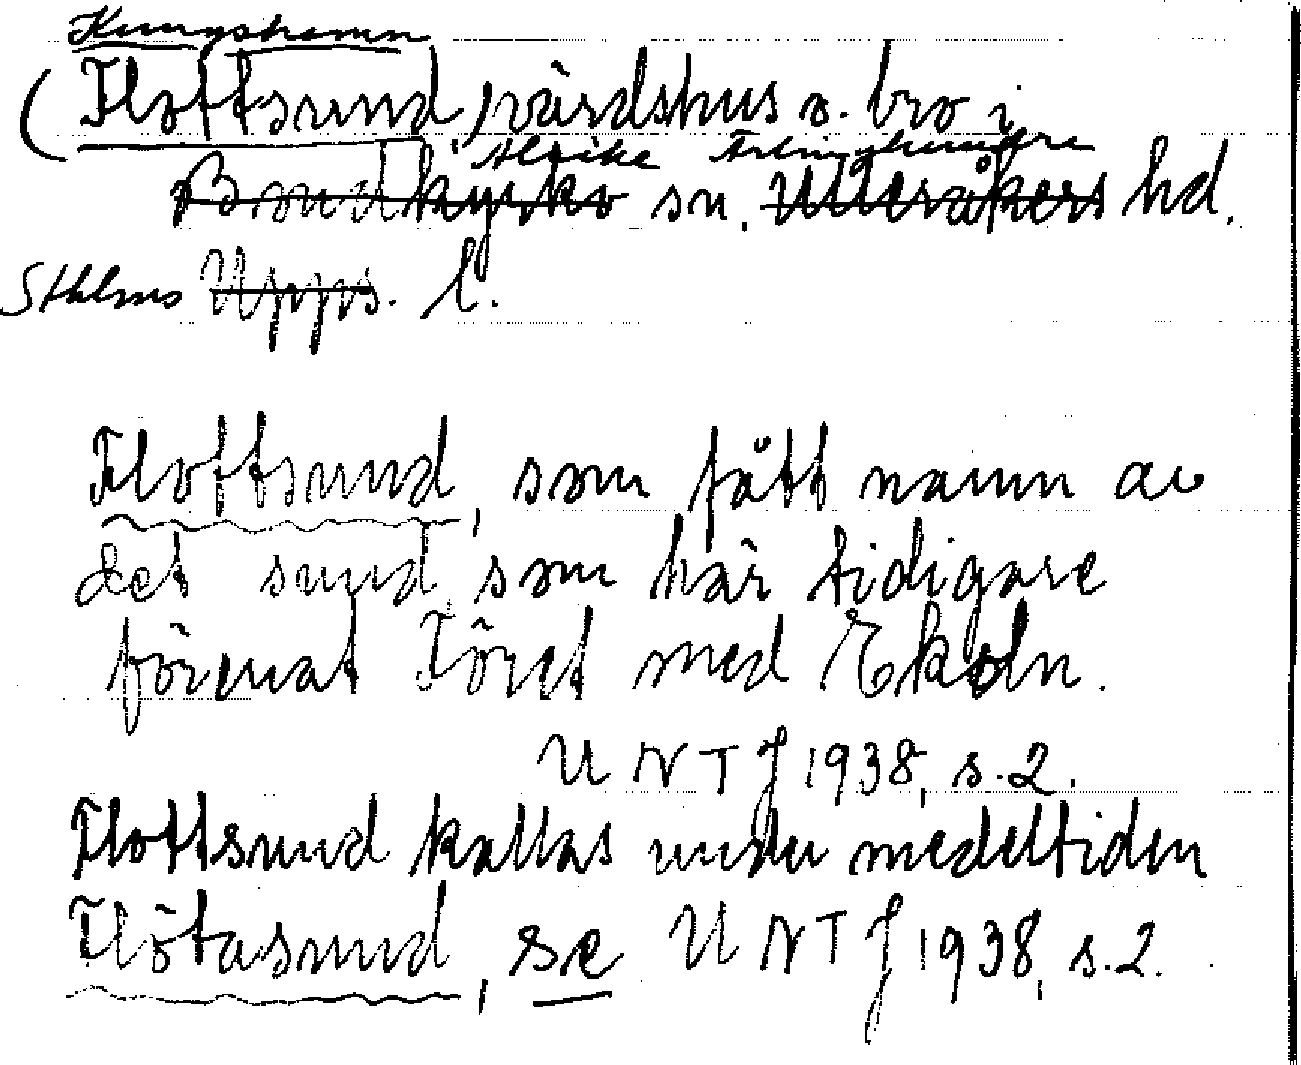 Kungshamn
(Flottsund, värdshus o. bro i
Alsike Ärlinghundra
Bondkyrko sn. Ulleråkers hd.
Sthlms Upps. l.
Flottsund, som fått namn av
det sund, som här tidigare
förenat Föret med Ekoln.
UNTJ 1938, s.2.
Flottsund kallas under medeltiden
Flötasund, se UNTJ 1938, s.2.